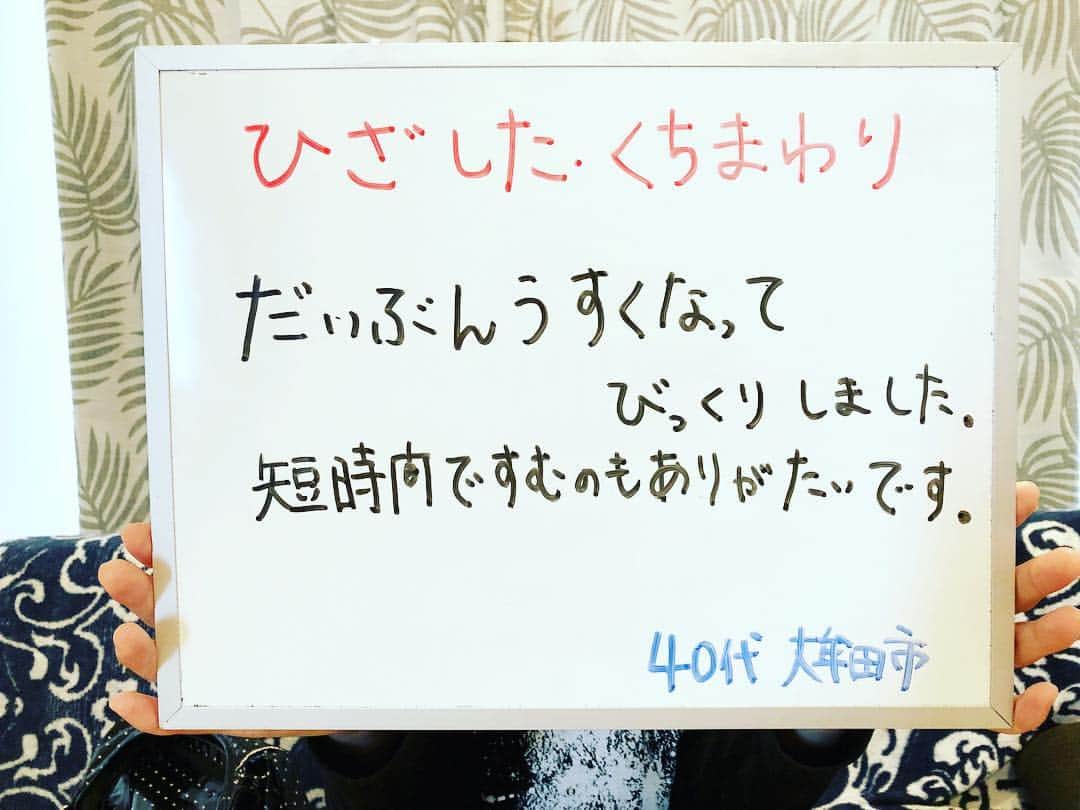 ひざした・くちまわり
だいぶんうすくなって
びっくりしました。
短時間ですむのもありがたいです。
40代 大牟田市